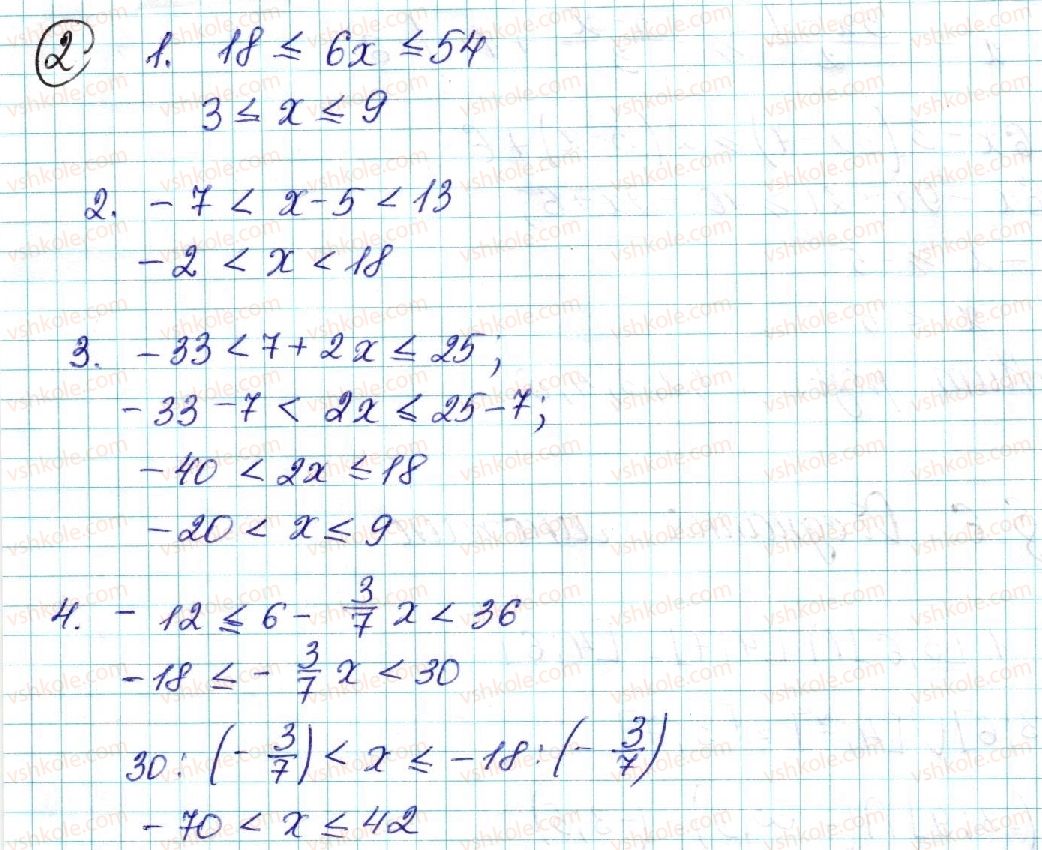 2 1. 18 ≤ 6x ≤ 54
3 ≤ x ≤ 9
2. - 7 < x - 5 < 13
- 2 < x < 18
3. - 33 < 7 + 2x ≤ 25;
- 33 - 7 < 2x ≤ 25 - 7;
- 40 < 2x ≤ 18
- 20 < x ≤ 9
4. - 12 ≤ 6 - 3/7 x < 36
- 18 ≤ - 3/7 x < 30
30 : (- 3/7) < x ≤ - 18 : (- 3/7)
- 70 < x ≤ 42
vshkole.com